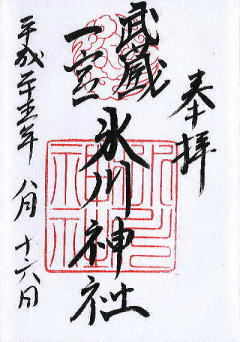 奉拝
武蔵
一宮
氷川神社
平成二十五年八月十六日